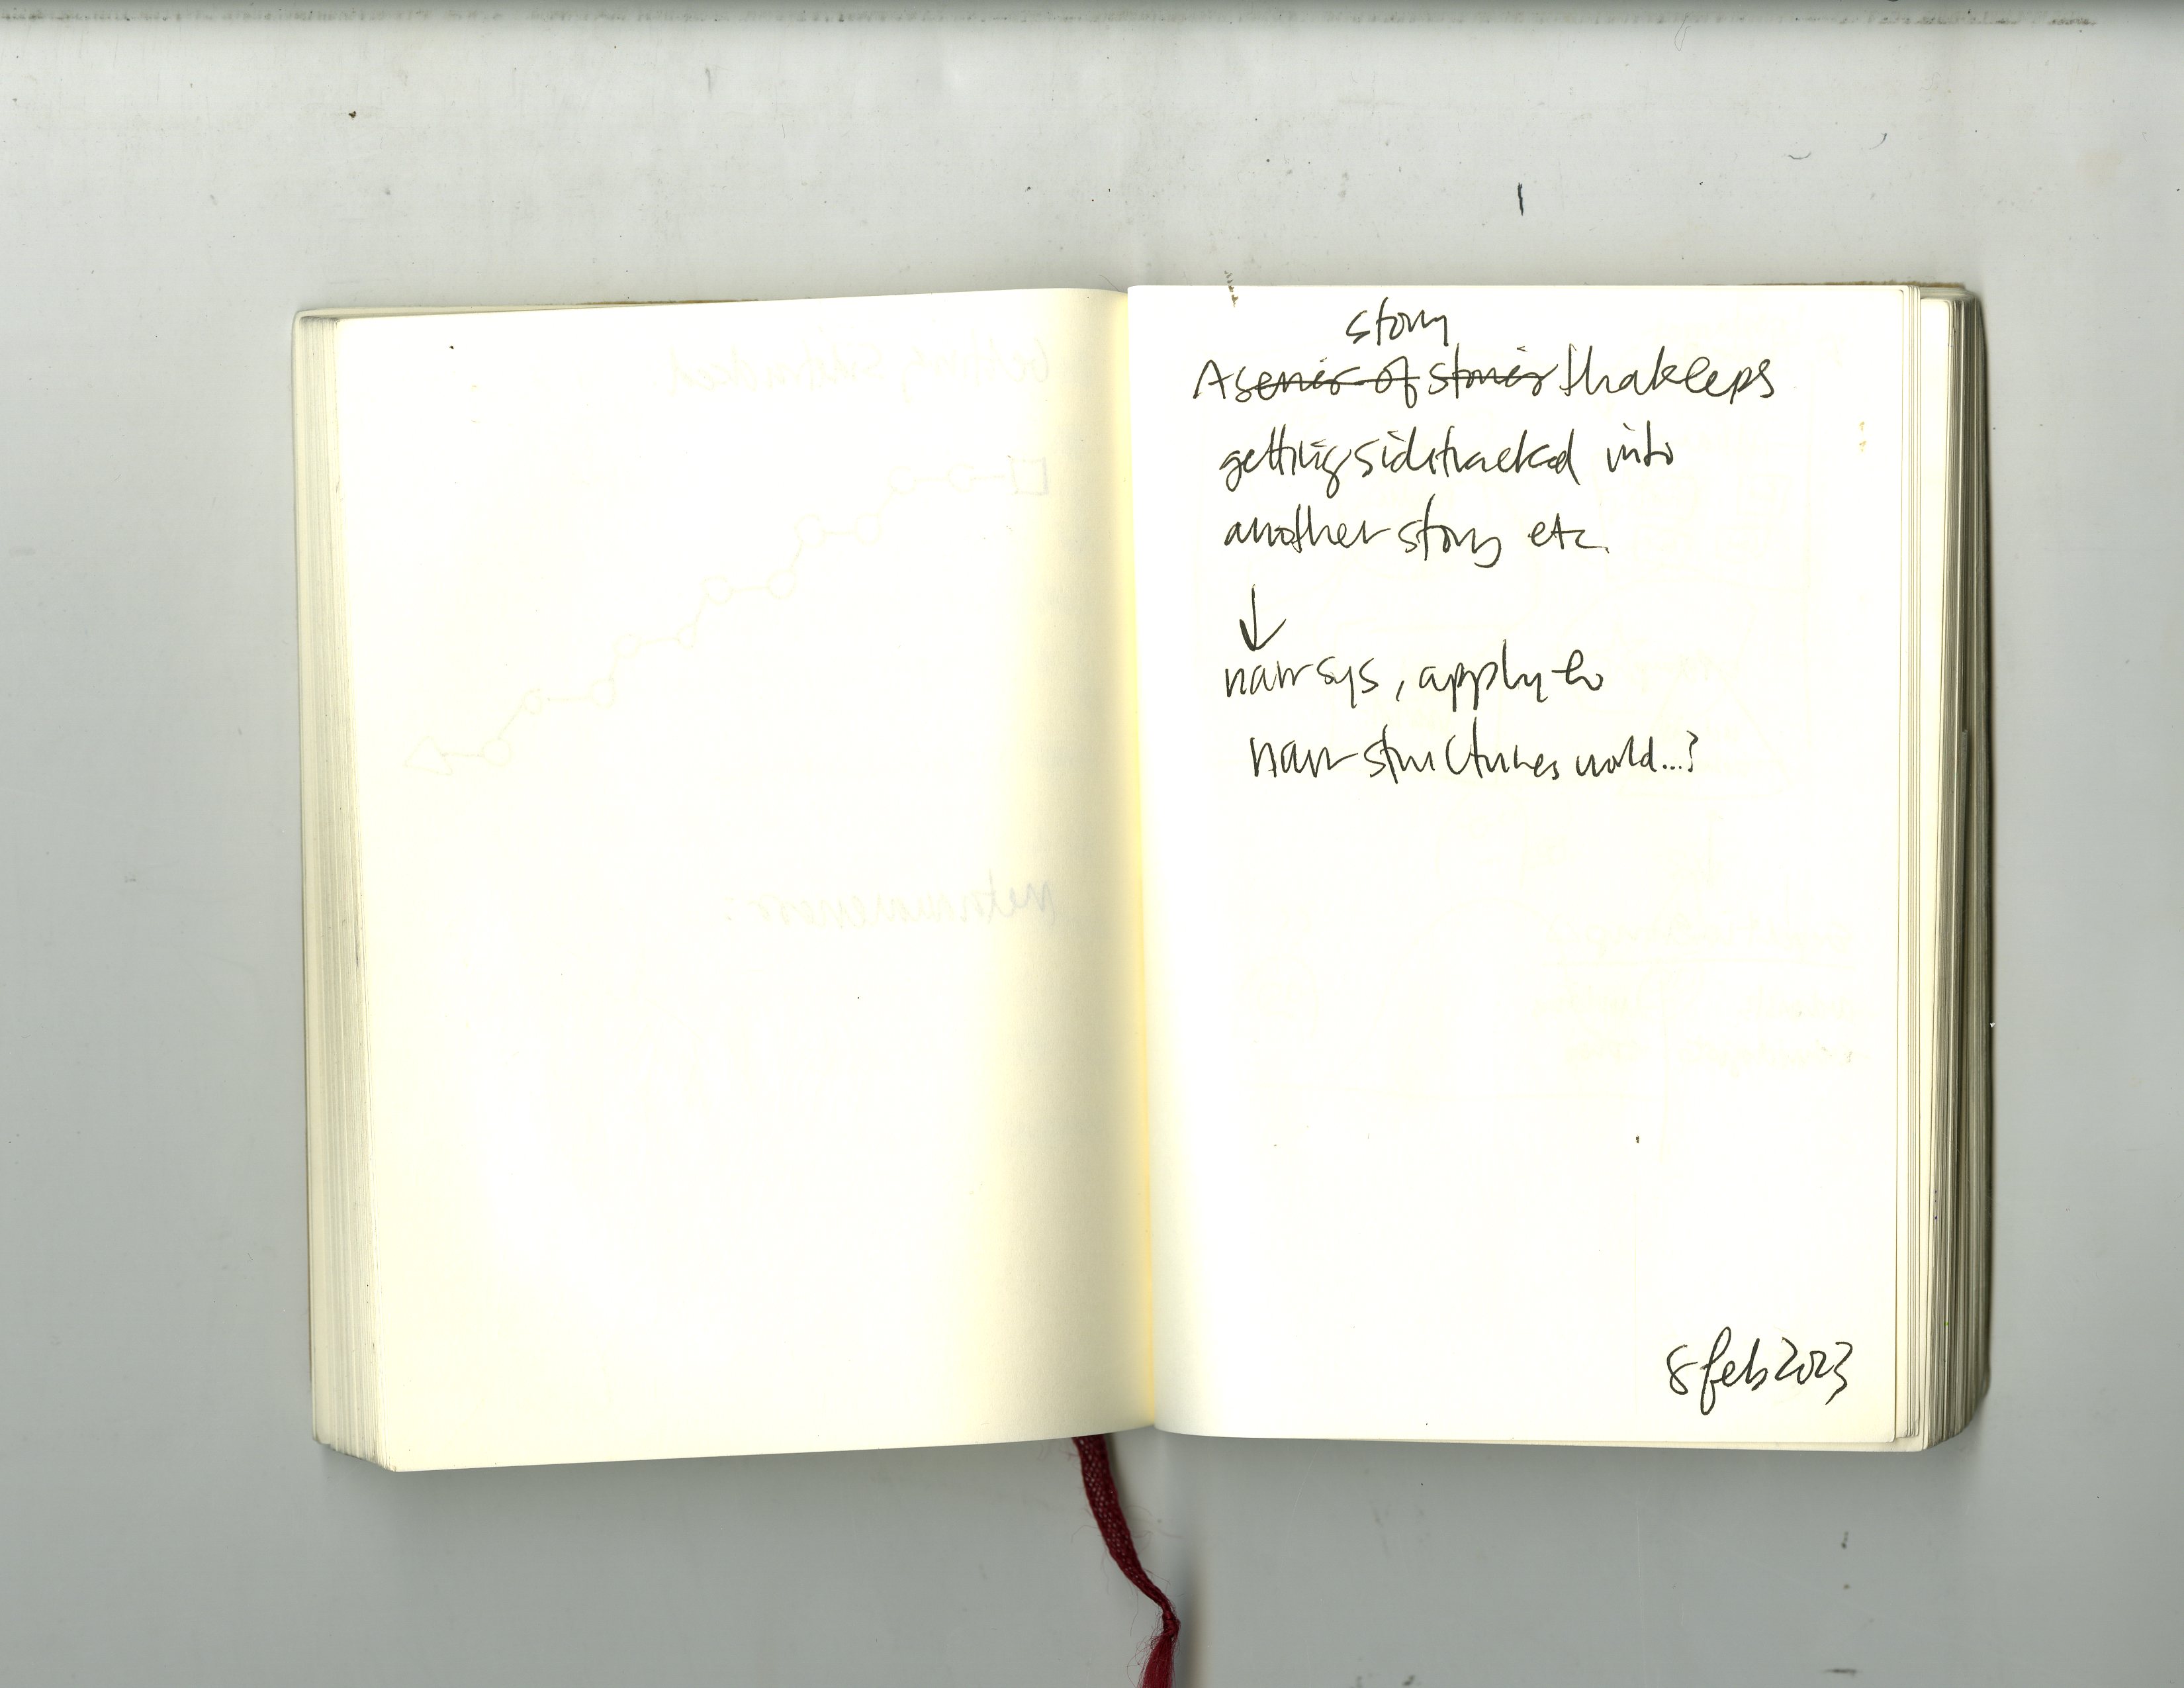 story
A series of stories thakeeps
getting sidetracked into
another story etc.
↓
narr sys, apply to
narr structures world...?
8 feb 2023
getting sidetracked